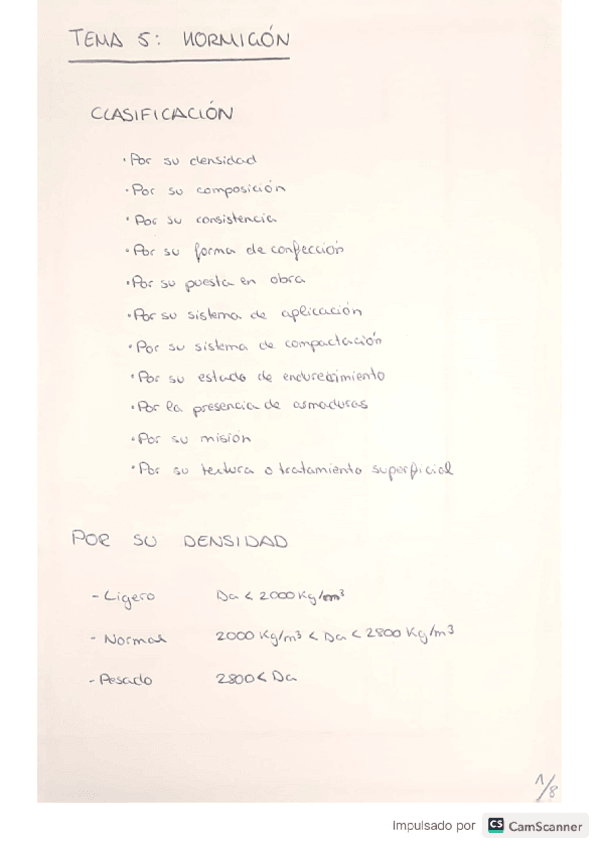 TEMA 5: HORMIGÓN
CLASIFICACIÓN
· Por su densidad
· Por su composición
· Por su consistencia
· Por su forma de confección
· Por su puesta en obra
· Por su sistema de aplicación
· Por su sistema de compactación
· Por su estado de endurecimiento
· Por la presencia de armaduras
· Por su misión
· Por su textura o tratamiento superficial
POR SU DENSIDAD
- Ligero Da < 2000 Kg/m³
- Normal 2000 Kg/m³ < Da < 2800 Kg/m³
- Pesado 2800 < Da
1/8
Impulsado por CS CamScanner